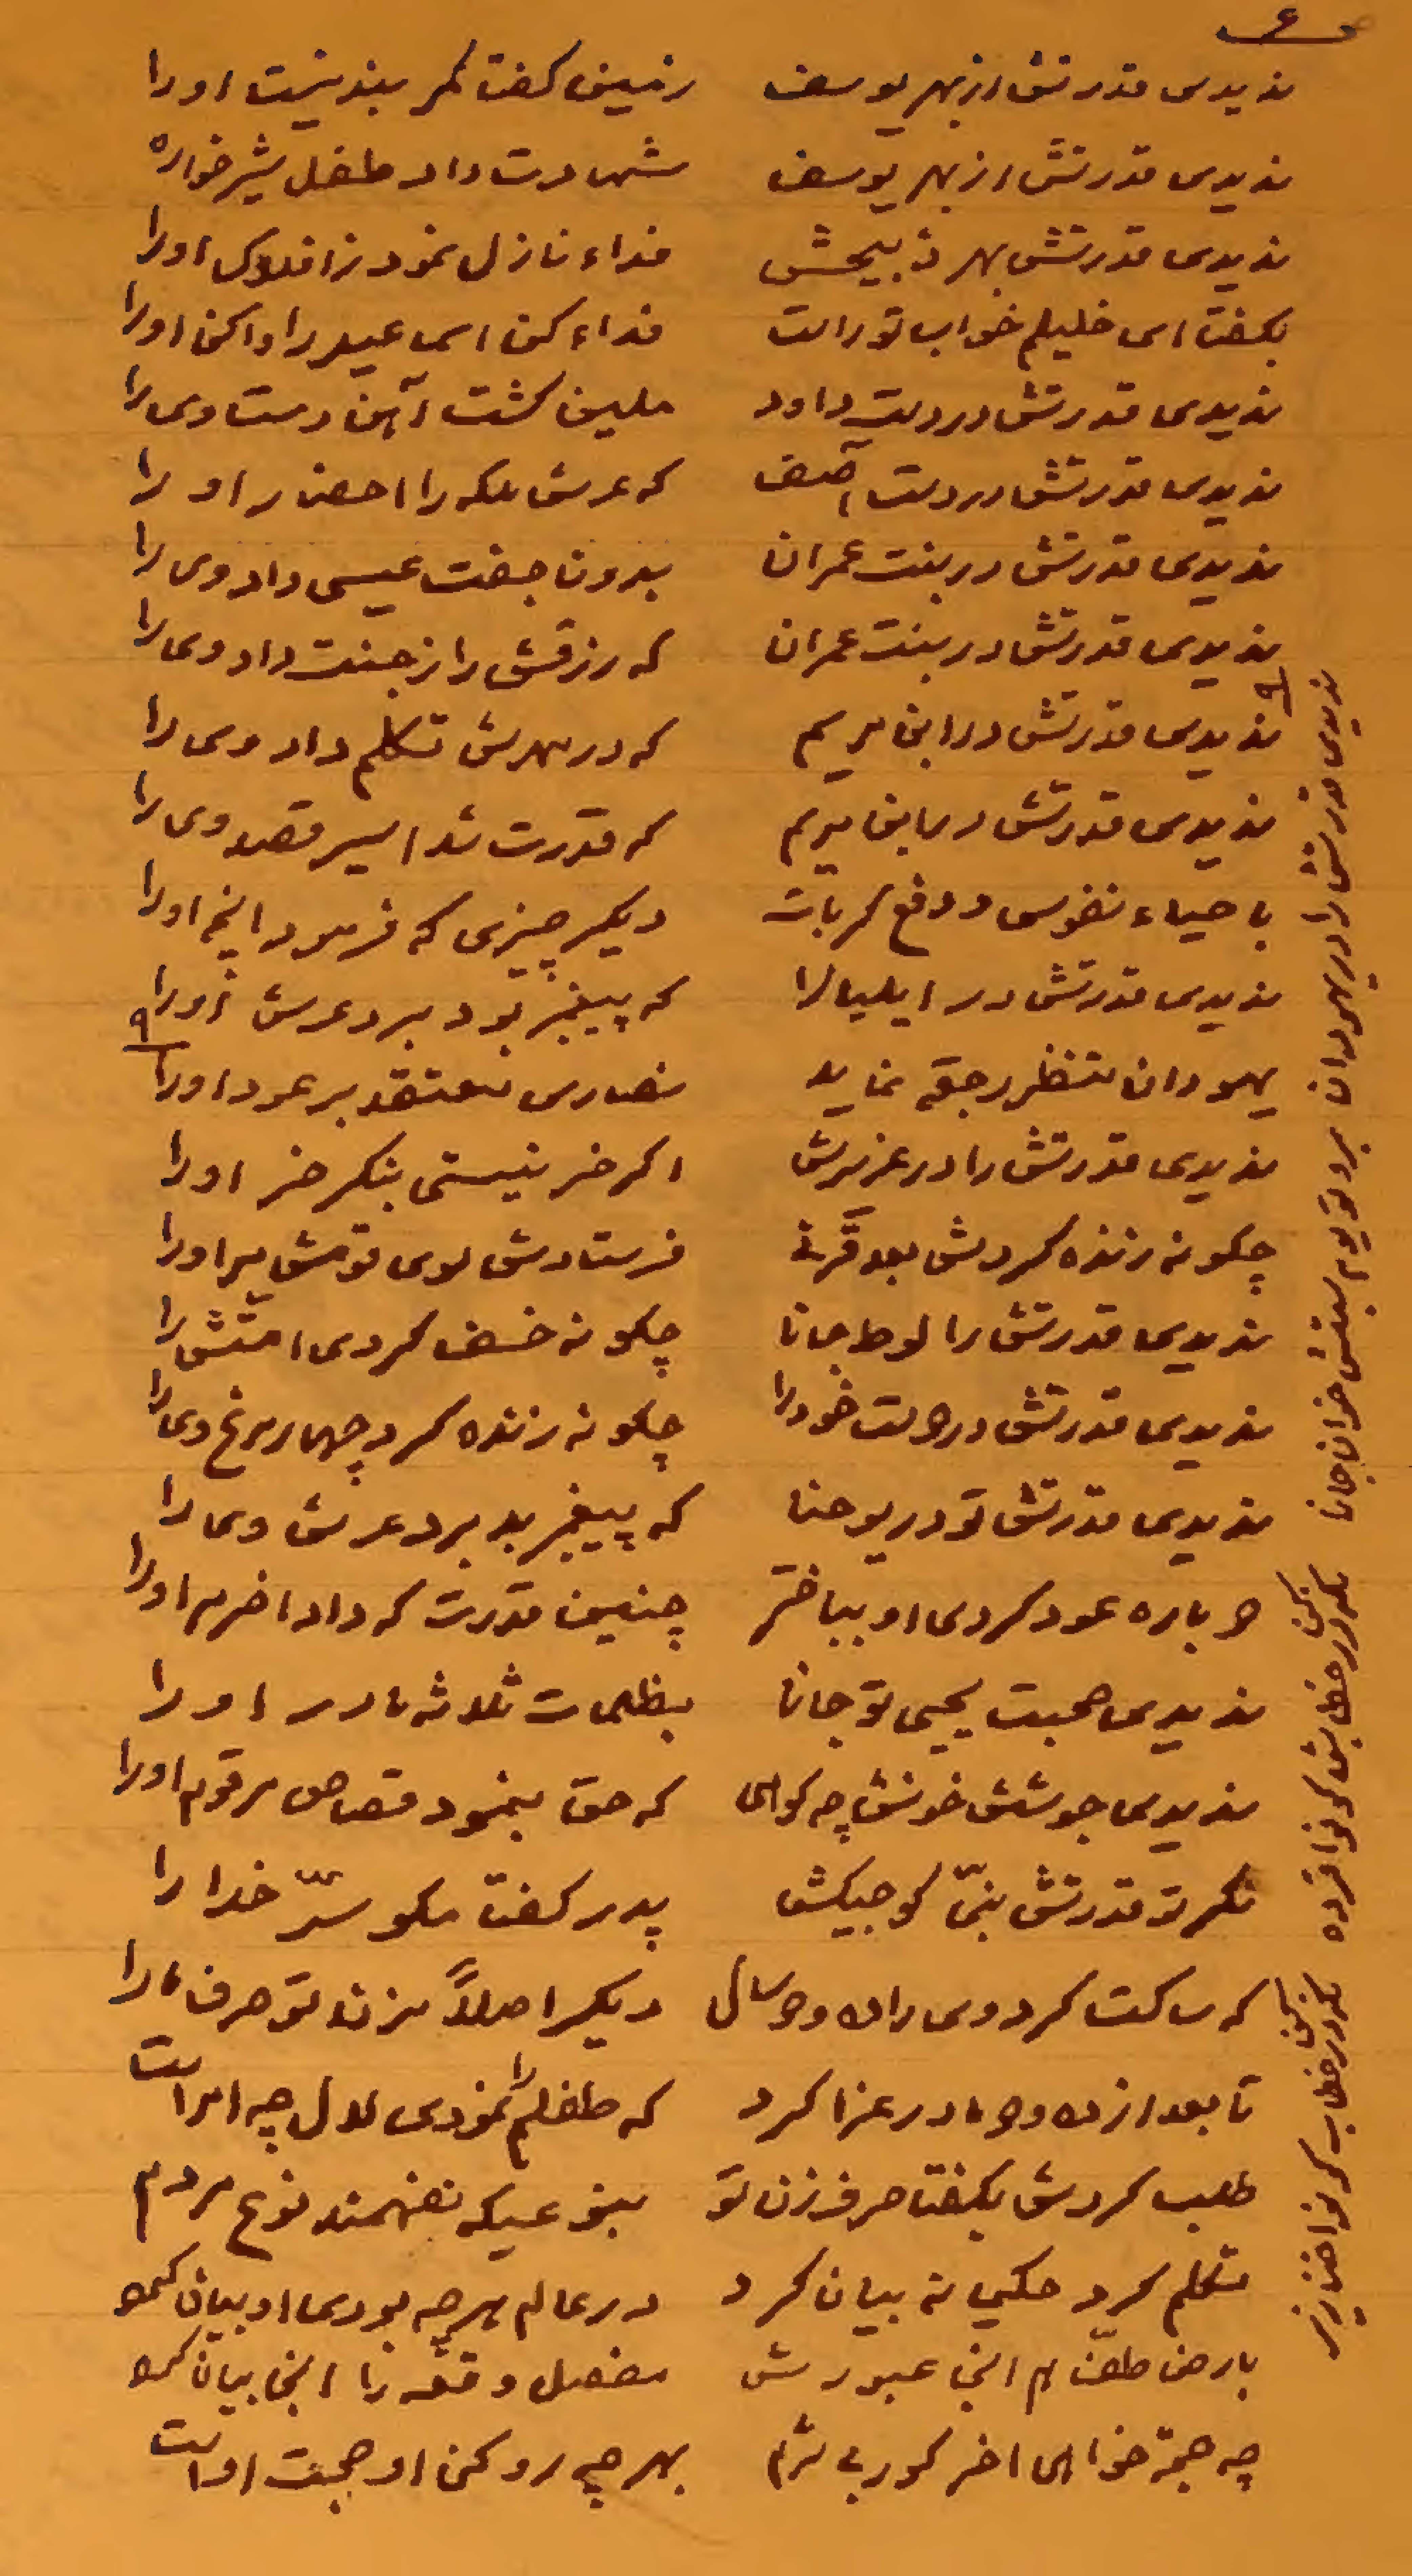 ۶
ندیدی قدرتش از بهر یوسف زمین گفت کمر بندیست اورا
ندیدی قدرتش از بهر یوسف شهادت داد طفل شیرخواره
ندیدی قدرتش بهر ذبیحش فداء نازل نمود ز افلاک اورا
بگفت ای خلیلم خواب تو راست فداء کن اسمعیل را واکن اورا
ندیدی قدرتش در دست داود ملین گشت آهن دست وی را
ندیدی قدرتش در دست آصف که عرش ملکه را احضار اورا
ندیدی قدرتش در بنت عمران بدون جفت عیسی داد وی را
ندیدی قدرتش در بنت عمران که رزقش را ز جنت داد وی را
ندیدی قدرتش در ابن مریم که در مهدش تکلم داد وی را
ندیدی قدرتش در ابن مریم که قدرت شد اسیر قصد وی را
با حیاء نفوس و دفع کربات دیگر چیزی که فرمود اینجا اورا
ندیدی قدرتش در ایلیا را که پیغمبر بود برد عرش اورا
۹
یهودان منتظر رجعة نماید نصاری معتقد بر عود اورا
ندیدی قدرتش را در عزیرش اگر خر نیستی بنگر خر اورا
چگونه زنده کردش بعد قرنی فرستادش سوی قومش مر اورا
ندیدی قدرتش را لوط جانا چگونه خسف کردی امتش را
ندیدی قدرتش در دست خود را چگونه زنده کرد چهار مرغ وی را
ندیدی قدرتش تو در یوحنا که پیغمبر بد برد عرش وی را
دوباره عود کردی او چنین قدرت که داد اخر مر اورا
ندیدی صحبت یحیی تو جانا بظلمات ثلاثه مادر اورا
ندیدی جوشش خونش چه گواهی که حق بنمود قصاص مر قوم اورا
نگر تو قدرتش بنی کوچیکش پدر گفت مگو سرّ خدا را
که ساکت کرد وی را ده و دو سال دیگر اصلاً مزن تو حرف ما را
تا بعد از ده و دو مادر عزا کرد که طفلم را نمودی لال چه امر است
طلب کردش بگفتا حرف زن تو بنوعیکه نفهمند نوع مردم
تکلم کرد حکیمانه بیان کرد در عالم هرچه بودی او بیان کرد
بارض طف هم این عبورش مفصل وقعه را بیان کرد
چه حجة خواهی اخر کور بی شرم بهر چه رو کنی او حجت او است
ندیدی قدرتش را در یهودان برد تو یوم سبتش خوان جانا